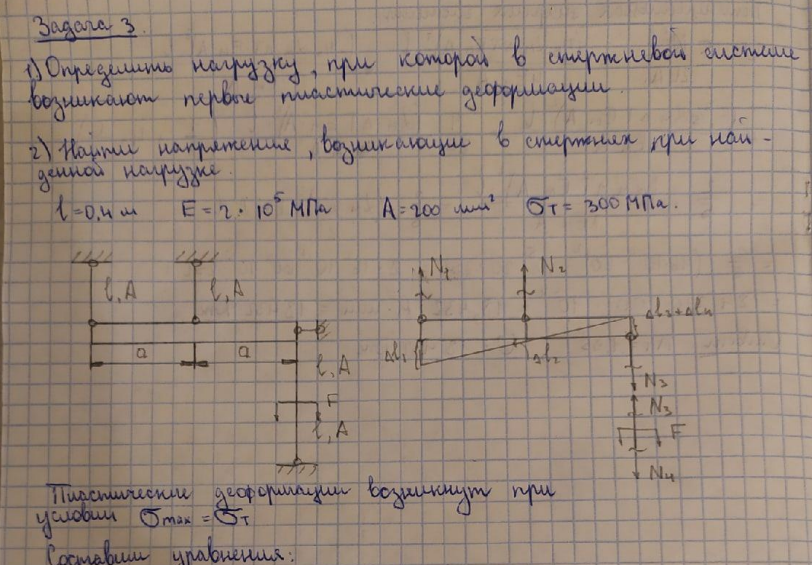 Задача 3.
1) Определить нагрузку, при которой в стержневой системе
возникают первые пластические деформации.
2) Найти напряжения, возникающие в стержнях при най-
денной нагрузке.
l=0,4 м E=2·10⁵ МПа A=200 мм² σт=300 МПа.
l, A l, A
a a
l, A
F
l, A
N₁ N₂
Δl₁ Δl₂ Δl₃+Δl₄
N₃
N₃
F
N₄
Пластические деформации возникнут при
условии σmax=σт
Составим уравнения: